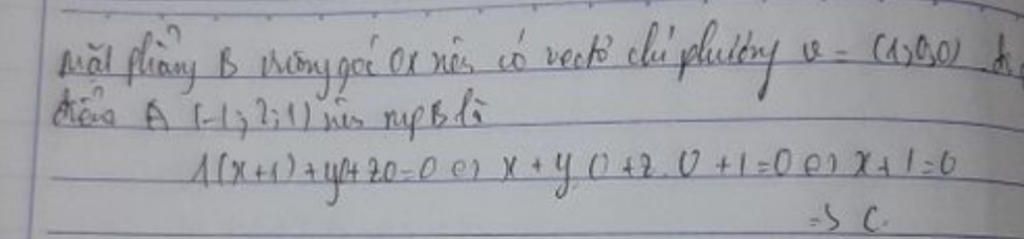 mặt phẳng B vuông góc Ox nên có vectơ chỉ phương u = (1,0,0)
điểm A (-1; 2; 1) nên mpB là
1(x+1) + y0 + z0 = 0 <=> x + y.0 + z.0 + 1 = 0 <=> x + 1 = 0
=> C.